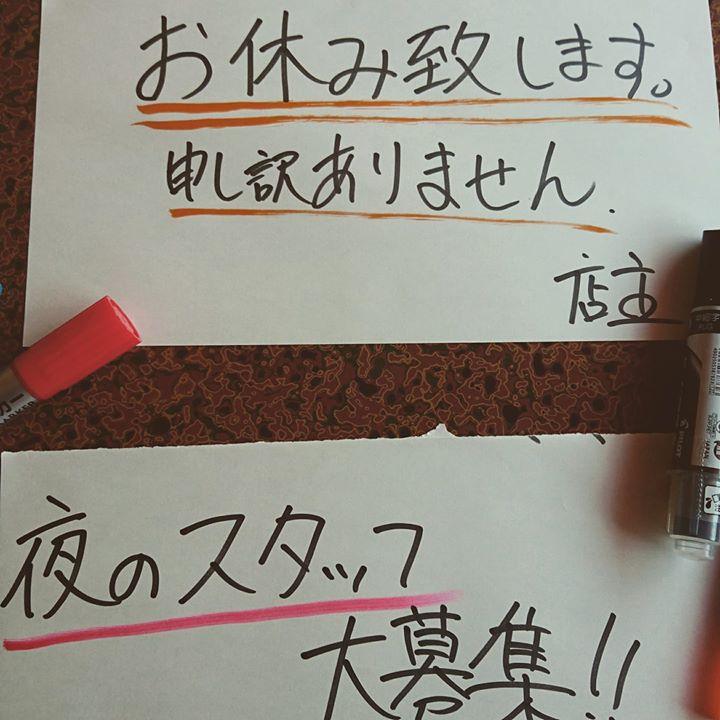 お休み致します。
申し訳ありません.
店主
夜のスタッフ
大募集!!